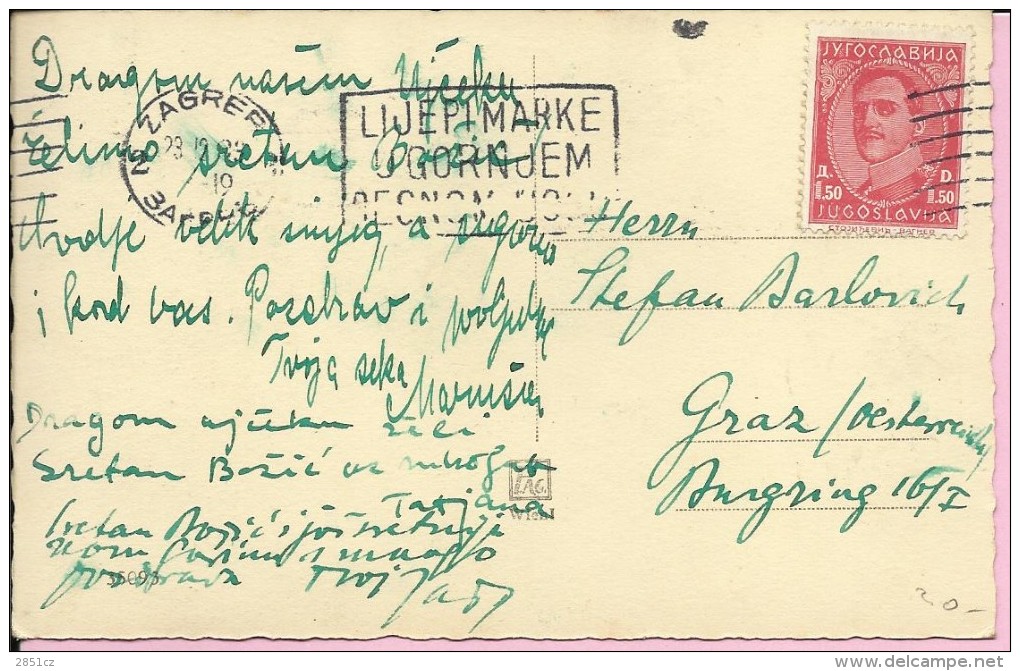 Dragom našem Ujčeku
želimo sretan Božić!
Ovdje velik snijeg, a sigurno
i kod vas. Pozdrav i poljubac
Tvoja seka
Dragom ujčeku želi
Sretan Božić uz mnogo
Tatjana
Sretan Božić i još sretniju
Novu Godinu i mnogo
pozdrava Tvoj
36093
ZAGREB
ЗАГРЕБ
LIJEPI MARKE
U GORNJEM
DESNOM
ЈУГОСЛАВИЈА
Д. D.
1.50 1.50
JUGOSLAVIJA
Herrn
Stefan Barlovich
Graz / Oesterreich
Burgring 16/I
Wien
20-
2851cz
delcampe.net